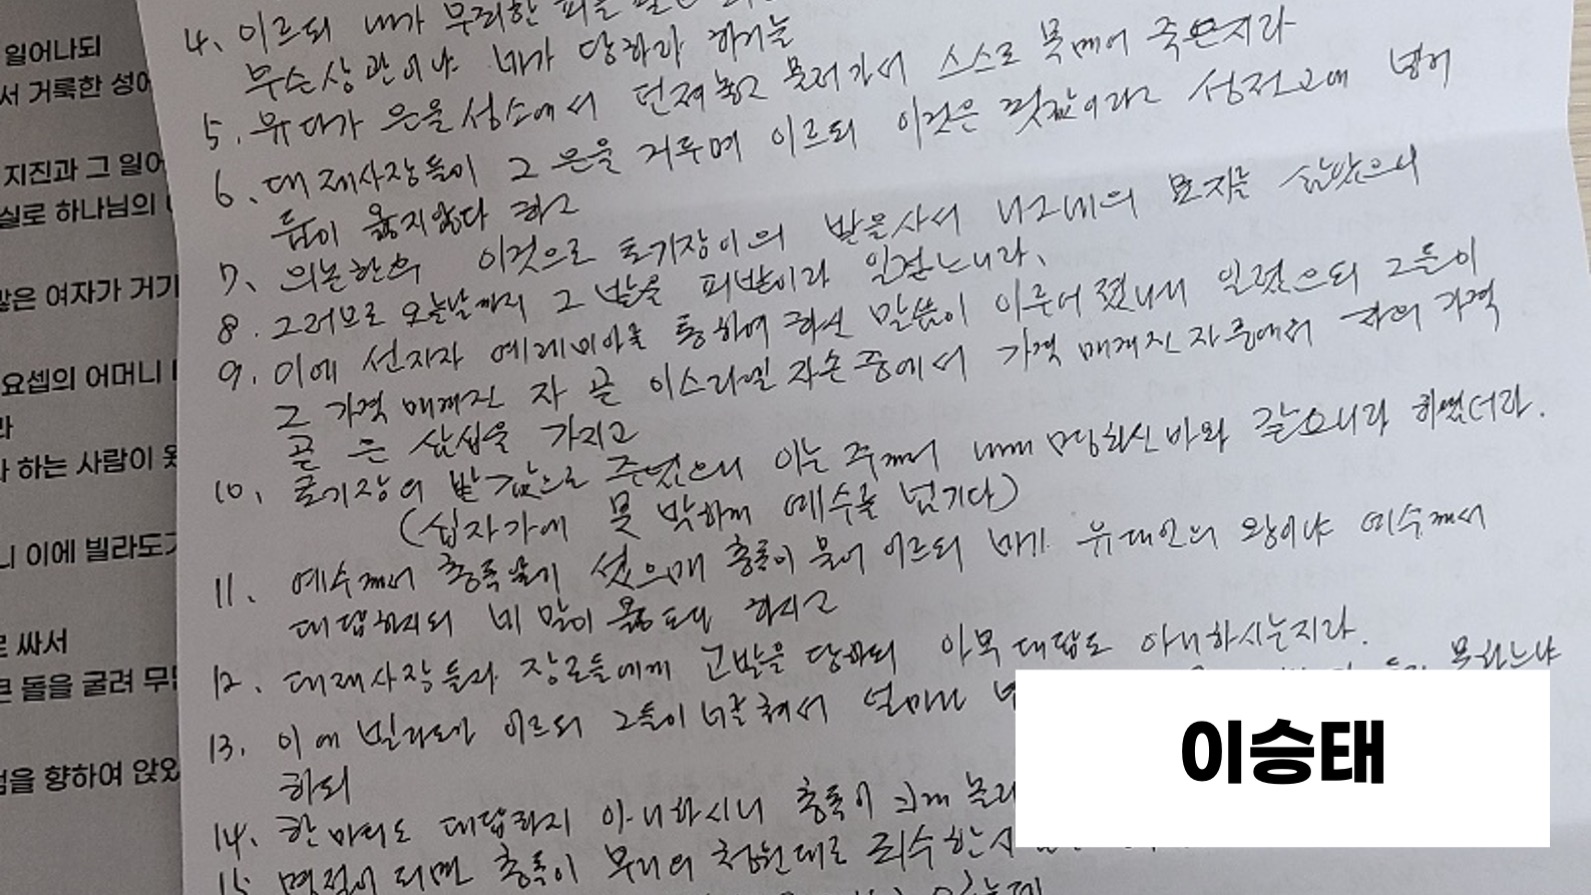 일어나되
서 거룩한 성에
지진과 그 일어
실로 하나님의
많은 여자가 거기
요셉의 어머니
라
하는 사람이
니 이에 빌라도
로 싸서
큰 돌을 굴려 무덤
을 향하여 앉았
4. 이르되 내가 무죄한 피를
무슨상관이냐 네가 당하라 하거늘
5. 유다가 은을 성소에서 던져놓고 물러가서 스스로 목메어 죽은지라
6. 대제사장들이 그 은을 거두며 이르되 이것은 핏값이라고 성전고에 넣어
둠이 옳지않다 하고
7. 의논한후 이것으로 토기장이의 밭을사서 나그네의 묘지를 삼았으니
8. 그러므로 오늘날까지 그 밭을 피밭이라 일컫느니라.
9. 이에 선지자 예레미야를 통하여 하신 말씀이 이루어졌나니 일렀으되 그들이
그 가격 매겨진 자 곧 이스라엘 자손중에서 가격 매겨진 자 의 가격
곧 은 삼십을 가지고
10. 토기장이 밭 값으로 주었으니 이는 주께서 내게 명하신바와 같으니라 하였더라.
(십자가에 못 박하게 예수를 넘기다)
11. 예수께서 총독앞에 섰으매 총독이 물어 이르되 네가 유대인의 왕이냐 예수께서
대답하시되 네 말이 옳도다 하시고
12. 대제사장들과 장로들에게 고발을 당하되 아무 대답도 아니하시는지라.
13. 이에 빌라도가 이르되 그들이 너를 쳐서 얼마나 못하느냐
하되
14. 한 마디도 대답하지 아니하시니 총독이 크게 놀라
15. 명절이 되면 총독이 무리의 청원대로 죄수 한사
이승태